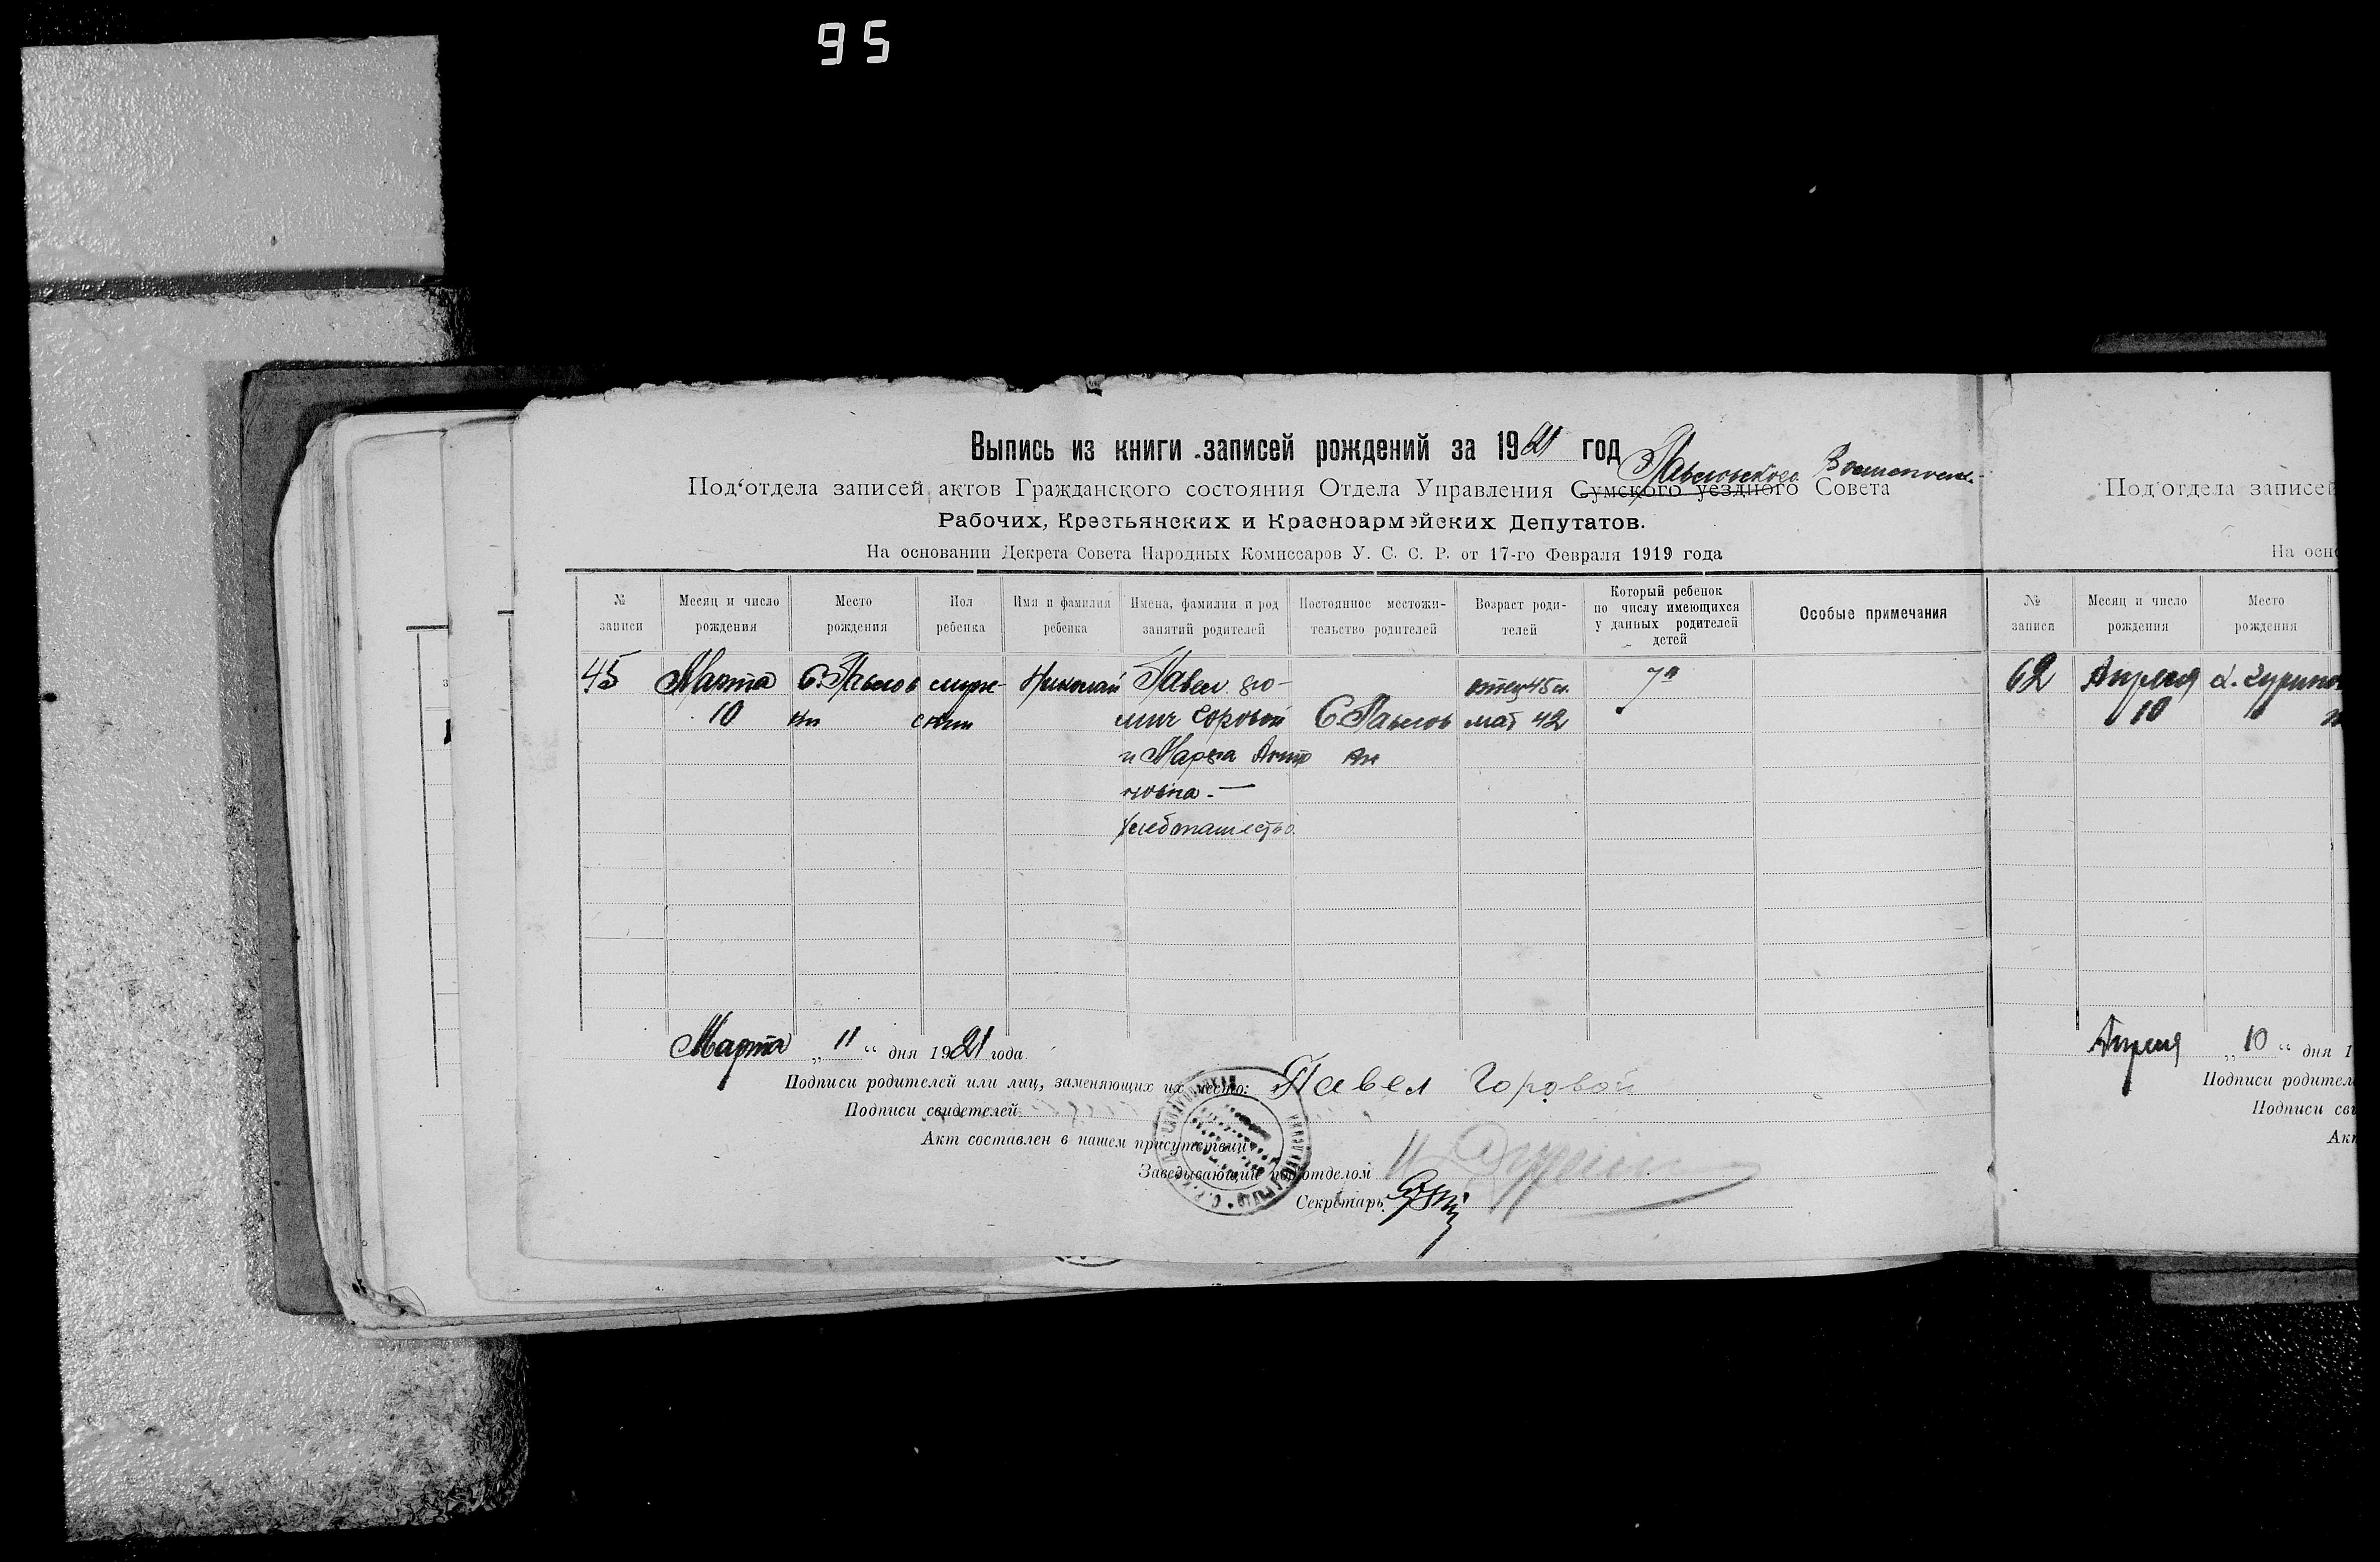 95
Выпись из книги записей рождений за 1921 год
Павловского
Под‘отдела записей актов Гражданского состояния Отдела Управления Сумского уездного Совета
Рабочих, Крестьянских и Красноармэйских Депутатов.
На основании Декрета Совета Народных Комиссаров У. С. С. Р. от 17-го Февраля 1919 года
№ записи
Месяц и число рождения
Место рождения
Пол ребенка
Имя и фамилия ребенка
Имена, фамилии и род занятий родителей
Постоянное местожительство родителей
Возраст родителей
Который ребенок по числу имеющихся у данных родителей детей
Особые примечания
45 Марта С. Павлов мужс- Николай Павел 7й
10 ки ский Горовой С. Павлов мат 42
и Марфа
новна. —
хлебопашество
Марта „ 11 “ дня 1921 года.
Подписи родителей или лиц, заменяющих их место: Павел Горовой
Подписи свидетелей
Акт составлен в нашем присутствии
Заведывающий под‘отделом
Секретарь
Под‘отдела записей
На осно
№ записи
Месяц и число рождения
Место рождения
62 Апреля
10
Апреля „ 10 “ дня 1
Подписи родител
Подписи сви
Акт